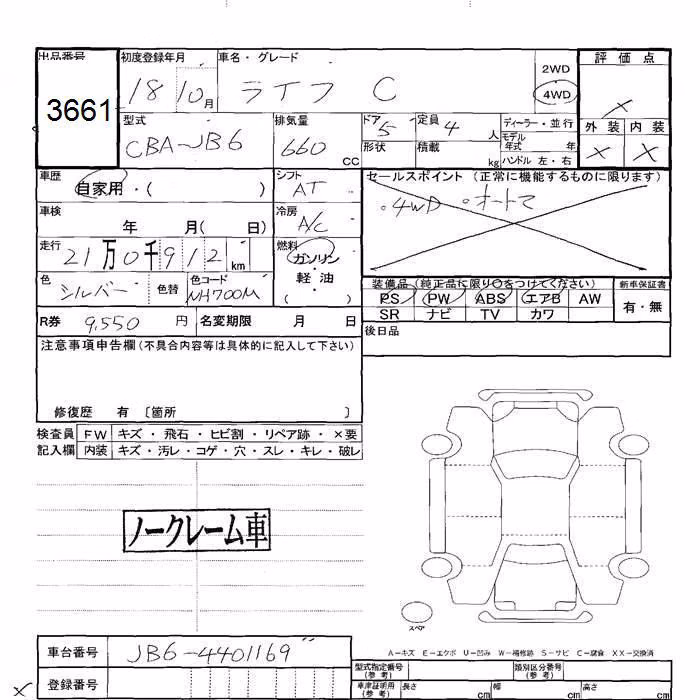 出品番号 初度登録年月 車名・グレード 評価点
3661 18 10月 ライフ C 2WD 4WD ×
型式 排気量 ドア 5 定員 4人 ディーラー・並行 外装 内装
CBA-JB6 660 cc 形状 積載 kg モデル年式 年 × ×
ハンドル 左・右
車歴 自家用・( ) シフト AT セールスポイント (正常に機能するものに限ります)
車検 年 月( 日) 冷房 A/C 。4WD 。オートマ
走行 21万0千912km 燃料 ガソリン・軽油
色 シルバー 色替 色コード NH700M ( )
装備品(純正品に限り○をつけてください) 新車保証書
PS PW ABS エアB AW 有・無
SR ナビ TV カワ
R券 9,550円 名変期限 月 日 後日品
注意事項申告欄(不具合内容等は具体的に記入して下さい)
修復歴 有 〔箇所 〕
検査員 FW キズ・飛石・ヒビ割・リペア跡・×要
記入欄 内装 キズ・汚レ・コゲ・穴・スレ・キレ・破レ
ノークレーム車
スペア
A-キズ E-エクボ U-凹み W-補修跡 S-サビ C-腐食 XX-交換済
車台番号 JB6-4401169
型式指定番号 (参考) 類別区分番号 (参考)
× 登録番号 車庫証明用 (参考) 長さ cm 幅 cm 高さ cm